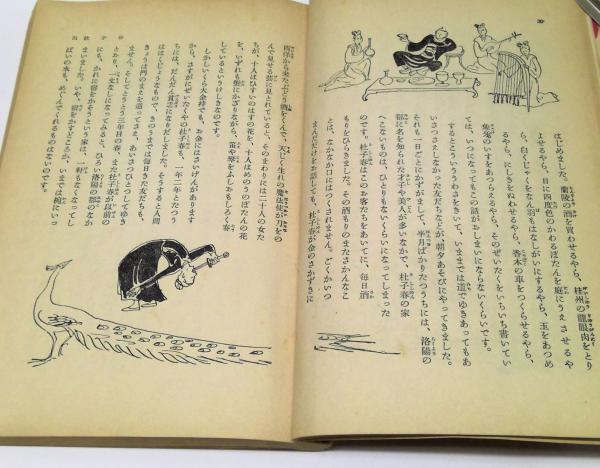 30
はじめました。蘭陵の酒を買わせるやら、桂州の龍眼肉をとり
よせるやら、日に四度色のかわるぼたんを庭にうえさせるや
ら、白くじゃくをなん羽もはなしがいにするやら、玉をあつめ
るやら、にしきをぬわせるやら、香木の車をつくらせるやら、
象牙のいすをあつらえるやら、そのぜいたくをいちいち書いてい
ては、いつになってもこの話がおしまいにならないくらいです。
するとこういううわさをきいて、いままでは道でゆきあってもあ
いさつさえしなかった友だちなどが、朝夕あそびにやってきました。
それも一日ごとにかずがまして、半月ばかりたつうちには、洛陽の
都に名を知られた才子や美人が多いなかで、杜子春の家
へこないものは、ひとりもないくらいになってしまった
のです。杜子春はこのお客たちをあいてに、毎日酒
もりをひらきました。その酒もりのまたさかんなこ
とは、なかなか口にはつくされません。ごくかいつ
まんだだけをお話しても、杜子春が金のさかずきに
西洋から来たぶどう酒をくんで、天じく生れの魔法使が刀をの
んで見せる芸に見とれていると、そのまわりには二十人の女た
ちが、十人はひすいのはすの花を、十人はめのうのぼたんの花
を、いずれも髪にかざりながら、笛や琴をふしおもしろく奏
しているというけしきなのです。
しかしいくら大金持でも、お金にはさいげんがあります
から、さすがにぜいたくやの杜子春も、一年二年とたつう
ちには、だんだん貧乏になりだしました。そうすると人間
ははくじょうなもので、きのうまでは毎日きた友だちも、
きょうは門のまえを通ってさえ、あいさつひとつしてゆき
ません。そしてとうとう三年目の春、また杜子春が以前の
とおり、一文なしになってみると、ひろい洛陽の都のなか
にも、かれに宿をかそうという家は、一軒もなくなってし
まいました。いや、宿をかすどころか、いまでは椀にいっ
ぱいの水も、めぐんでくれるものはないのです。